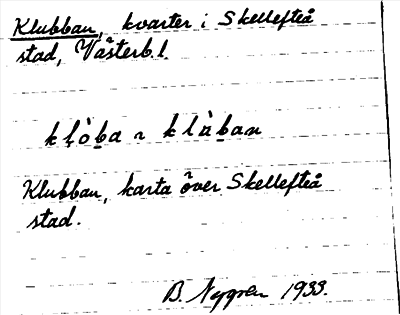 Klubban, kvarter i Skellefteå
stad, Västerb.l.
klò̤ba ~ klàban
Klubban, karta över Skellefteå
stad.
B. Nygren 1933.